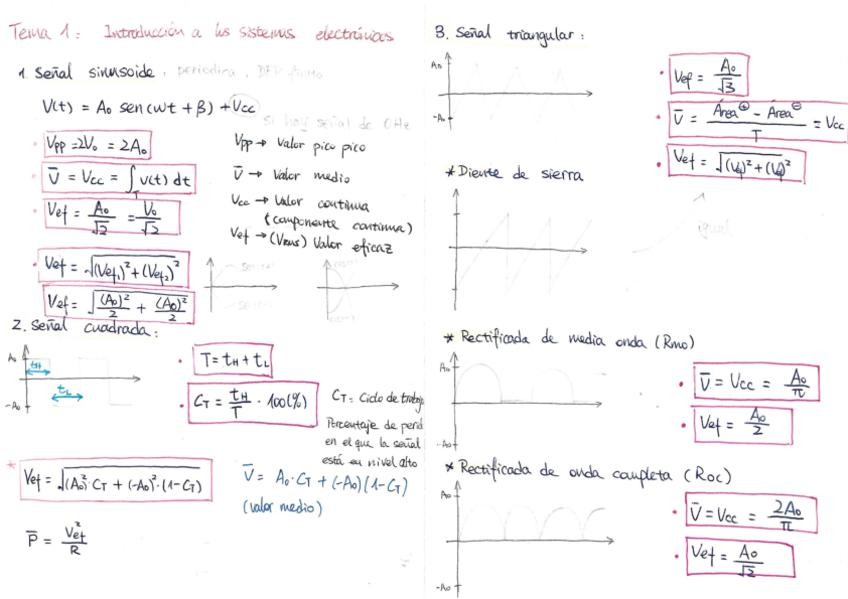 Tema 1: Introducción a los sistemas electrónicos
1. Señal sinusoide, periodica,
V(t) = A₀ sen(ωt + β) + Vcc
si hay señal de 0Hz
Vpp = 2V₀ = 2A₀
V̄ = Vcc = ∫_T v(t) dt
Vef = A₀/√2 = V₀/√2
Vef = √((Vef₁)² + (Vef₂)²)
Vef = √((A₀)²/2 + (A₀)²/2)
Vpp → Valor pico pico
V̄ → Valor medio
Vcc → Valor continua
(componente continua)
Vef → (VRMS) Valor eficaz
2. Señal cuadrada:
A₀
-A₀
tH
tL
T = tH + tL
CT = tH/T · 100(%)
CT = Ciclo de trabajo
Porcentaje de period
en el que la señal
está en nivel alto
* Vef = √((A₀)²·CT + (-A₀)²·(1-CT))
V̄ = A₀·CT + (-A₀)(1-CT)
(valor medio)
P̄ = Vef²/R
3. Señal triangular:
A₀
-A₀
Vef = A₀/√3
V̄ = (Área⊕ - Área⊖)/T = Vcc
Vef = √((Vef)² + (Vef)²)
* Diente de sierra
igual
* Rectificada de media onda (Rmo)
A₀
-A₀
V̄ = Vcc = A₀/π
Vef = A₀/2
* Rectificada de onda completa (Roc)
A₀
-A₀
V̄ = Vcc = 2A₀/π
Vef = A₀/√2